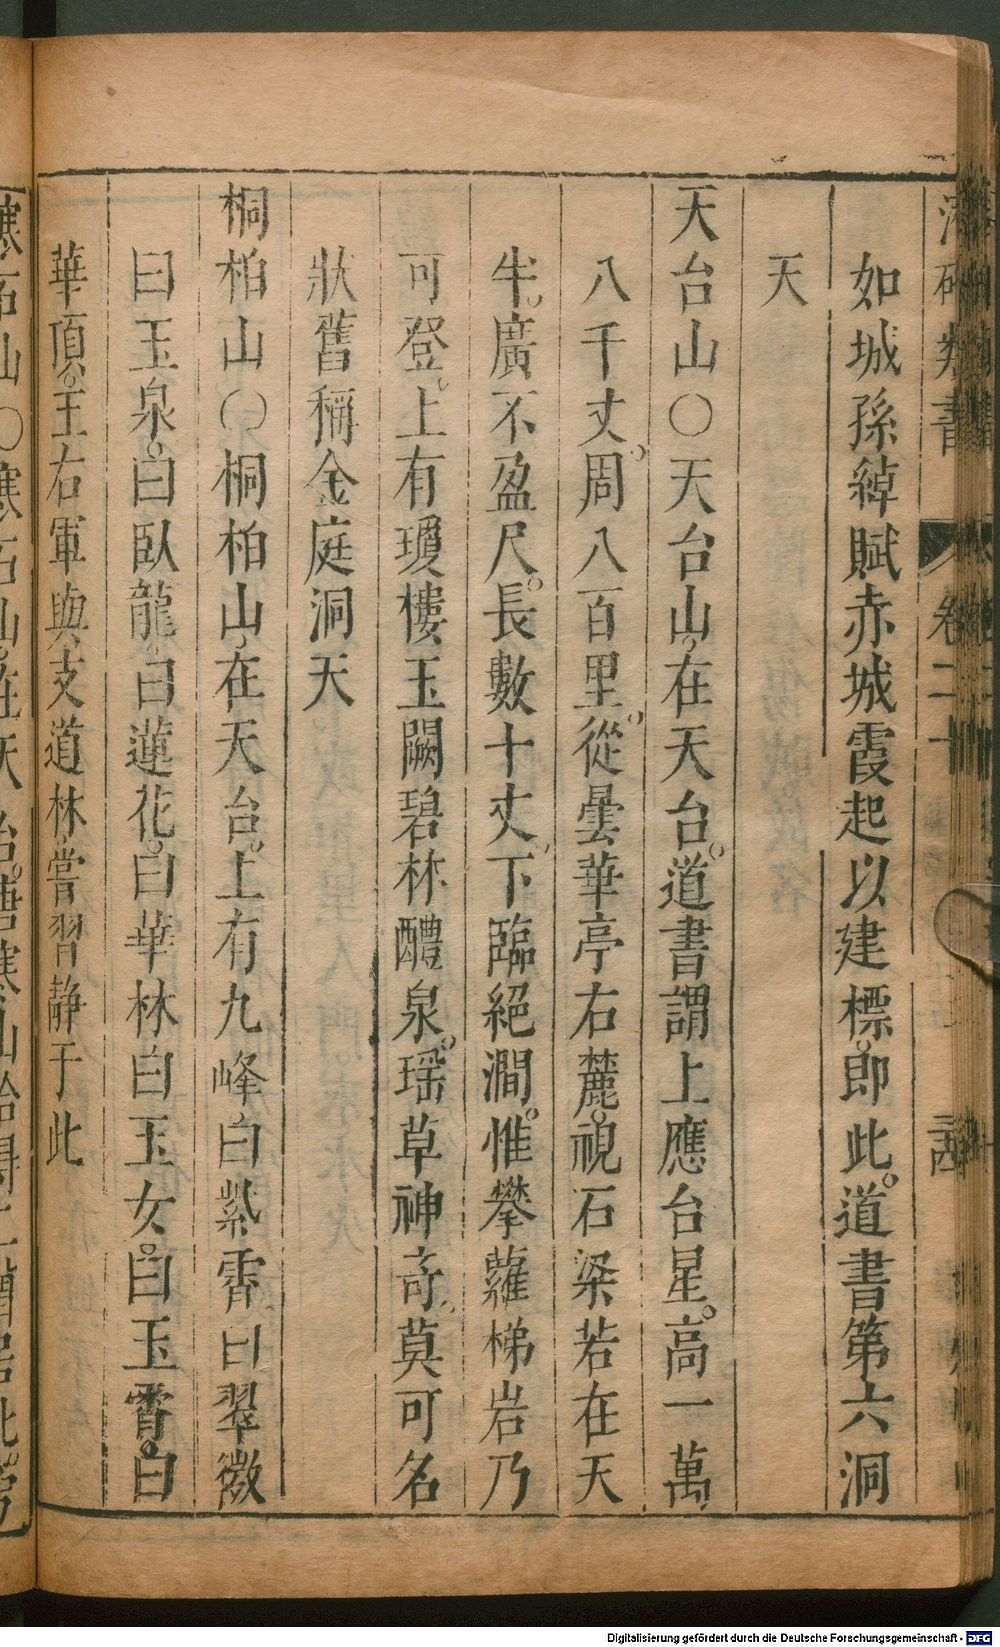 卷二十
如城孫綽賦赤城霞起以建標即此道書第六洞
天
天台山〇天台山在天台道書謂上應台星高一萬
八千丈周八百里從曇華亭右麓視石梁若在天
半廣不盈尺長數十丈下臨絕澗惟攀蘿梯岩乃
可登上有瓊樓玉闕碧林醴泉瑶草神奇莫可名
狀舊稱金庭洞天
桐柏山〇桐柏山在天台上有九峰曰紫霄曰翠微
曰玉泉曰臥龍曰蓮花曰華林曰玉女曰玉霄曰
華頂王右軍與支道林嘗習静于此
寒石山〇寒石山在天台唐寒山拾得
Digitalisierung gefördert durch die Deutsche Forschungsgemeinschaft - DFG